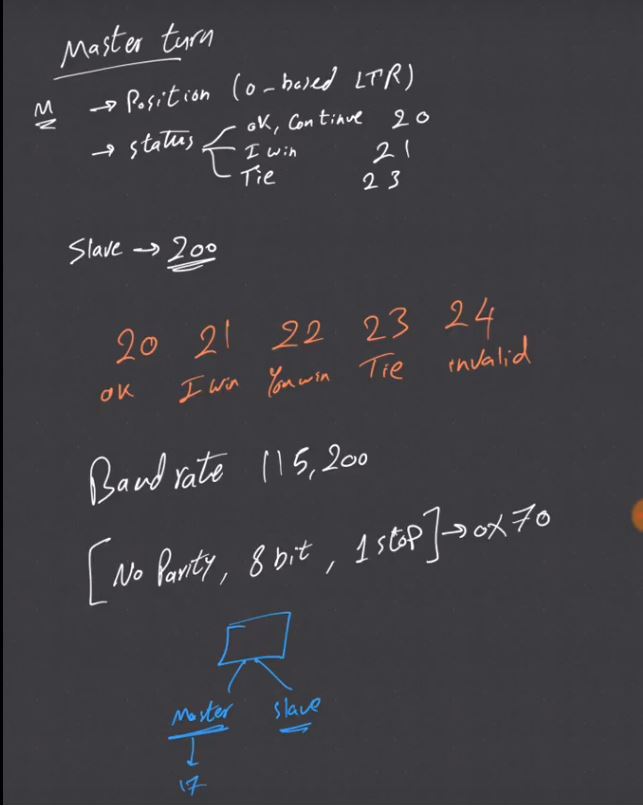 Master turn
M → Position (0-based LTR)
→ status
ok, Continue 20
I win 21
Tie 23
Slave → 200
20 21 22 23 24
ok I win You win Tie invalid
Baud rate 115,200
[No Parity, 8 bit, 1 stop] → 0x70
Master slave
17